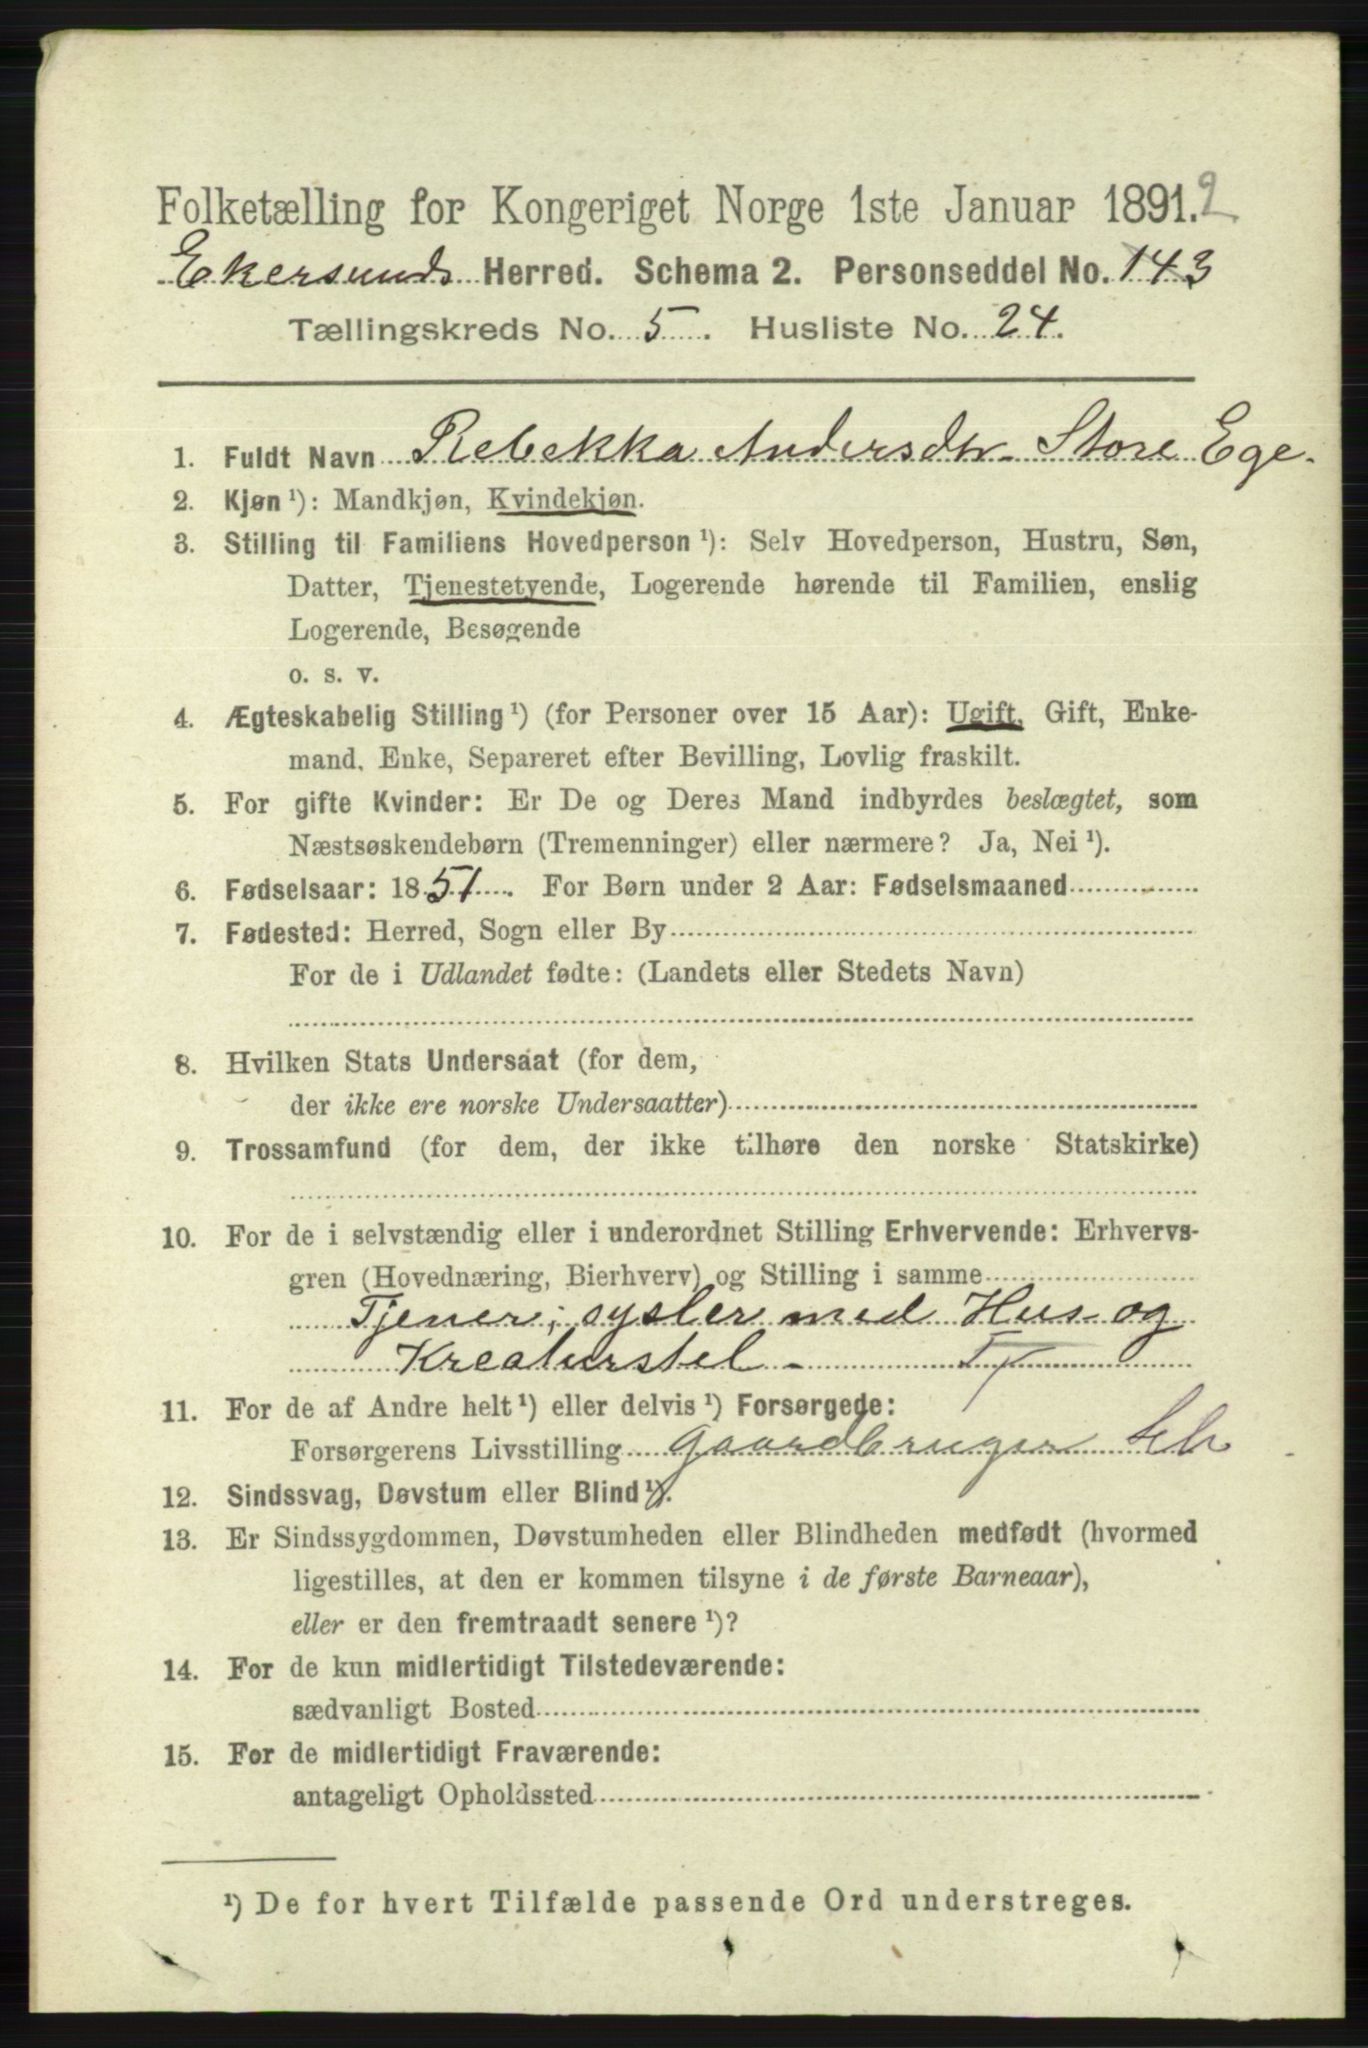 Folketælling for Kongeriget Norge 1ste Januar 1891. 2
Ekersunds Herred. Schema 2. Personseddel No. 143
Tællingskreds No. 5. Husliste No. 24.
1. Fuldt Navn Rebekka Andersdtr. Store Ege.
2. Kjøn ¹): Mandkjøn, Kvindekjøn.
3. Stilling til Familiens Hovedperson ¹): Selv Hovedperson, Hustru, Søn,
Datter, Tjenestetyende, Logerende hørende til Familien, enslig
Logerende, Besøgende
o. s. v.
4. Ægteskabelig Stilling ¹) (for Personer over 15 Aar): Ugift, Gift, Enke-
mand, Enke, Separeret efter Bevilling, Lovlig fraskilt.
5. For gifte Kvinder: Er De og Deres Mand indbyrdes beslægtet, som
Næstsøskendebørn (Tremenninger) eller nærmere? Ja, Nei ¹).
6. Fødselsaar: 1851. For Børn under 2 Aar: Fødselsmaaned
7. Fødested: Herred, Sogn eller By
For de i Udlandet fødte: (Landets eller Stedets Navn)
8. Hvilken Stats Undersaat (for dem,
der ikke ere norske Undersaatter)
9. Trossamfund (for dem, der ikke tilhøre den norske Statskirke)
10. For de i selvstændig eller i underordnet Stilling Erhvervende: Erhvervs-
gren (Hovednæring, Bierhverv) og Stilling i samme
Tjener; sysler med Hus og
Kreaturstel - T
11. For de af Andre helt ¹) eller delvis ¹) Forsørgede:
Forsørgerens Livsstilling gaardbruger
12. Sindssvag, Døvstum eller Blind ¹).
13. Er Sindssygdommen, Døvstumheden eller Blindheden medfødt (hvormed
ligestilles, at den er kommen tilsyne i de første Barneaar),
eller er den fremtraadt senere ¹)?
14. For de kun midlertidigt Tilstedeværende:
sædvanligt Bosted
15. For de midlertidigt Fraværende:
antageligt Opholdssted
¹) De for hvert Tilfælde passende Ord understreges.